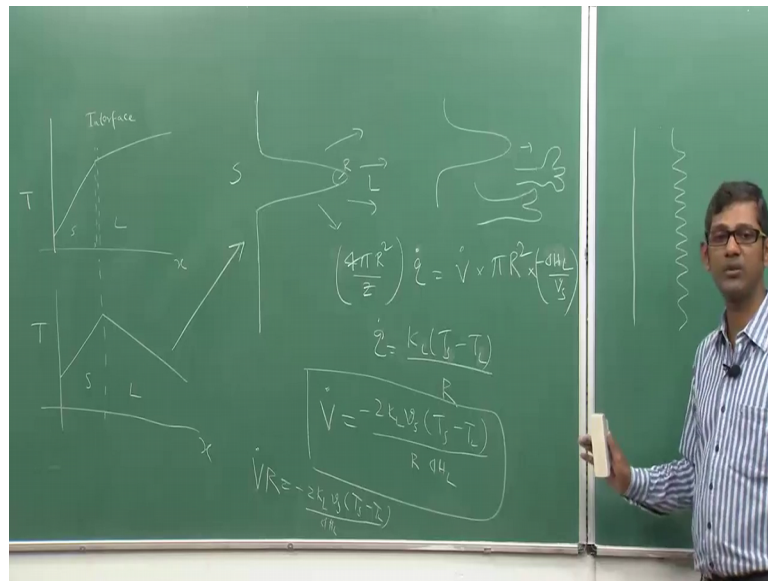 Interface
T
S L
x
T
S L
x
S R L
(4πR²/2) q̇ = V̇ × πR² × (-ΔH_L/V_S)
q̇ = K_L(T_S - T_L)/R
V̇ = -2K_L ϑ_S (T_S - T_L)/R ΔH_L
V̇R = -2K_L ϑ_S (T_S - T_L)/ΔH_L